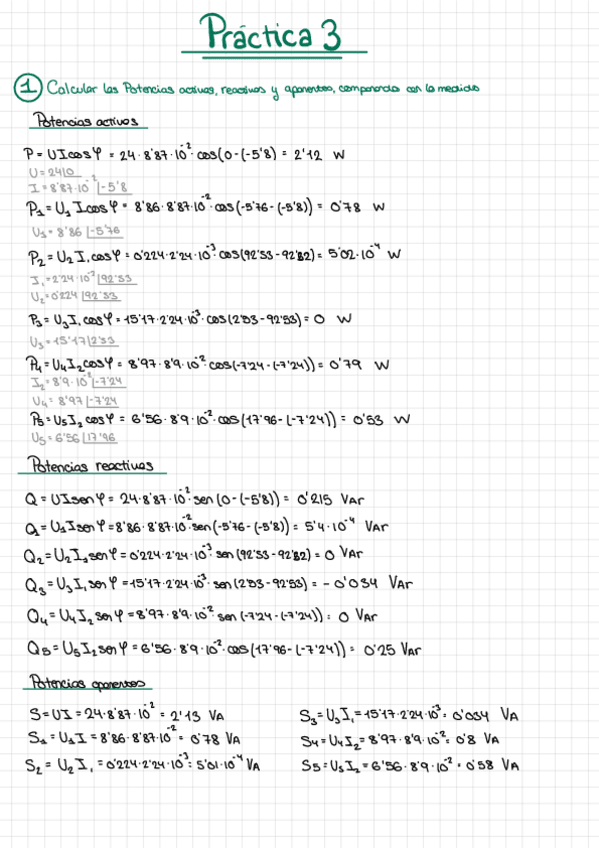 Práctica 3
1 Calcular las Potencias activas, reactivas y aparentes, comparando con lo medido
Potencias activas
P = UIcosφ = 24·8'87·10⁻²·cos(0-(-5'8)) = 2'12 W
U = 24|0
I = 8'87·10⁻²|-5'8
P₁ = U₁ I cosφ = 8'86·8'87·10⁻²·cos(-5'76-(-5'8)) = 0'78 W
U₁ = 8'86|-5'76
P₂ = U₂ I₁ cosφ = 0'224·2'24·10⁻³·cos(92'53-92'82) = 5'02·10⁻⁴ W
I₁ = 2'24·10⁻³|92'53
U₂ = 0'224|92'53
P₃ = U₃ I₁ cosφ = 15'17·2'24·10⁻³·cos(2'53-92'53) = 0 W
U₃ = 15'17|2'53
P₄ = U₄ I₂ cosφ = 8'97·8'9·10⁻²·cos(-7'24-(-7'24)) = 0'79 W
I₂ = 8'9·10⁻²|-7'24
U₄ = 8'97|-7'24
P₅ = U₅ I₂ cosφ = 6'56·8'9·10⁻²·cos(17'96-(-7'24)) = 0'53 W
U₅ = 6'56|17'96
Potencias reactivas
Q = UIsenφ = 24·8'87·10⁻²·sen(0-(-5'8)) = 0'215 VAr
Q₁ = U₁ I senφ = 8'86·8'87·10⁻²·sen(-5'76-(-5'8)) = 5'4·10⁻⁴ VAr
Q₂ = U₂ I₁ senφ = 0'224·2'24·10⁻³·sen(92'53-92'82) = 0 VAr
Q₃ = U₃ I₁ senφ = 15'17·2'24·10⁻³·sen(2'53-92'53) = -0'034 VAr
Q₄ = U₄ I₂ senφ = 8'97·8'9·10⁻²·sen(-7'24-(-7'24)) = 0 VAr
Q₅ = U₅ I₂ senφ = 6'56·8'9·10⁻²·cos(17'96-(-7'24)) = 0'25 VAr
Potencias aparentes
S = UI = 24·8'87·10⁻² = 2'13 VA
S₁ = U₁ I = 8'86·8'87·10⁻² = 0'78 VA
S₂ = U₂ I₁ = 0'224·2'24·10⁻³ = 5'01·10⁻⁴ VA
S₃ = U₃ I₁ = 15'17·2'24·10⁻³ = 0'034 VA
S₄ = U₄ I₂ = 8'97·8'9·10⁻² = 0'8 VA
S₅ = U₅ I₂ = 6'56·8'9·10⁻² = 0'58 VA